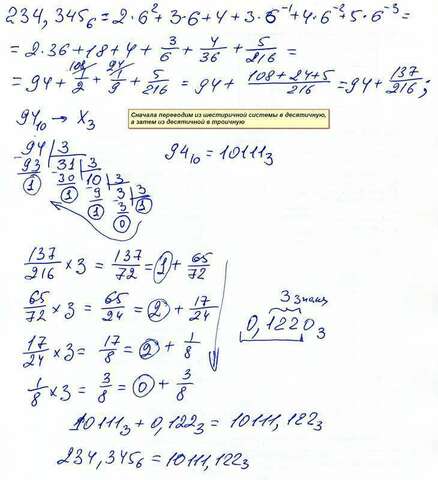 234,345₆ = 2·6² + 3·6 + 4 + 3·6⁻¹ + 4·6⁻² + 5·6⁻³ =
= 2·36 + 18 + 4 + 3/6 + 4/36 + 5/216 =
= 94 + 1/2 + 1/9 + 5/216 = 94 + (108 + 24 + 5)/216 = 94 + 137/216;
108 24
94₁₀ → X₃
Сначала переводим из шестиричной системы в десятичную,
а затем из десятичной в троичную
94 | 3
- 93 31 | 3
1 - 30 10 | 3
1 - 9 3 | 3
1 - 3 1
0
94₁₀ = 10111₃
137/216 × 3 = 137/72 = 1 + 65/72
65/72 × 3 = 65/24 = 2 + 17/24
17/24 × 3 = 17/8 = 2 + 1/8
1/8 × 3 = 3/8 = 0 + 3/8
3 знака
0,1220₃
10111₃ + 0,122₃ = 10111,122₃
234,345₆ = 10111,122₃